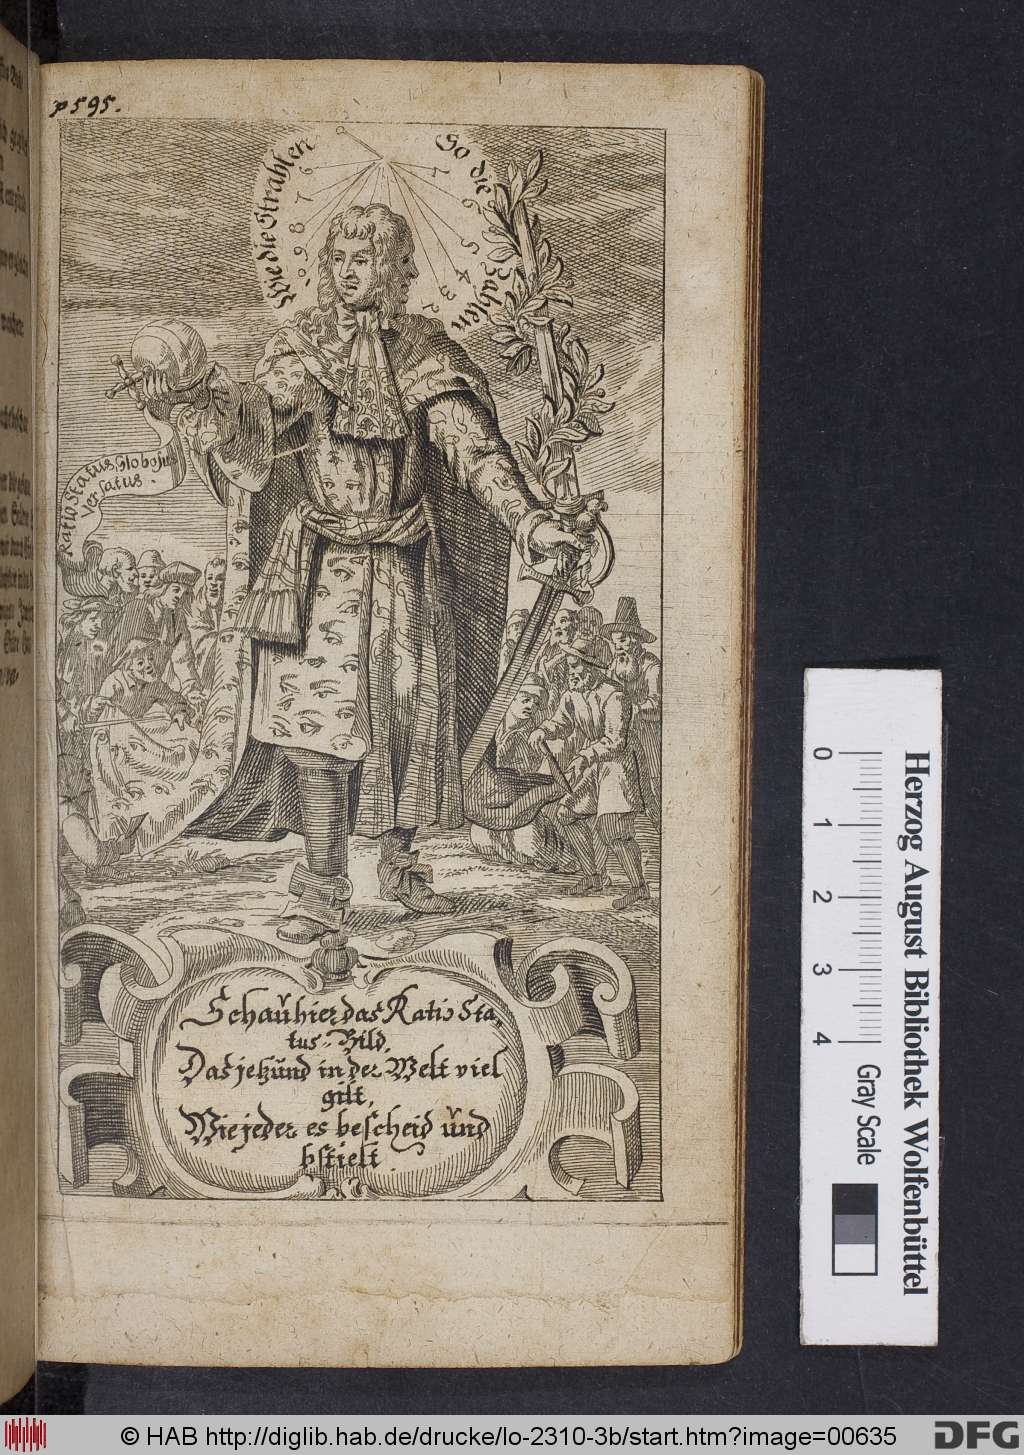 p 595.
Wie die Strahlen
So die Zahlen
1 2 3 4 5 6 7
6 7 8 9 10
Ratio Status Globosus
Versatus.
Schaŭ hier das Ratio Sta-
tus-Bild,
Das jetzŭnd in der Welt viel
gilt,
Wie jeder es bescheid ŭnd
bstielt
Herzog August Bibliothek Wolfenbüttel
0 1 2 3 4
Gray Scale
© HAB http://diglib.hab.de/drucke/lo-2310-3b/start.htm?image=00635
DFG